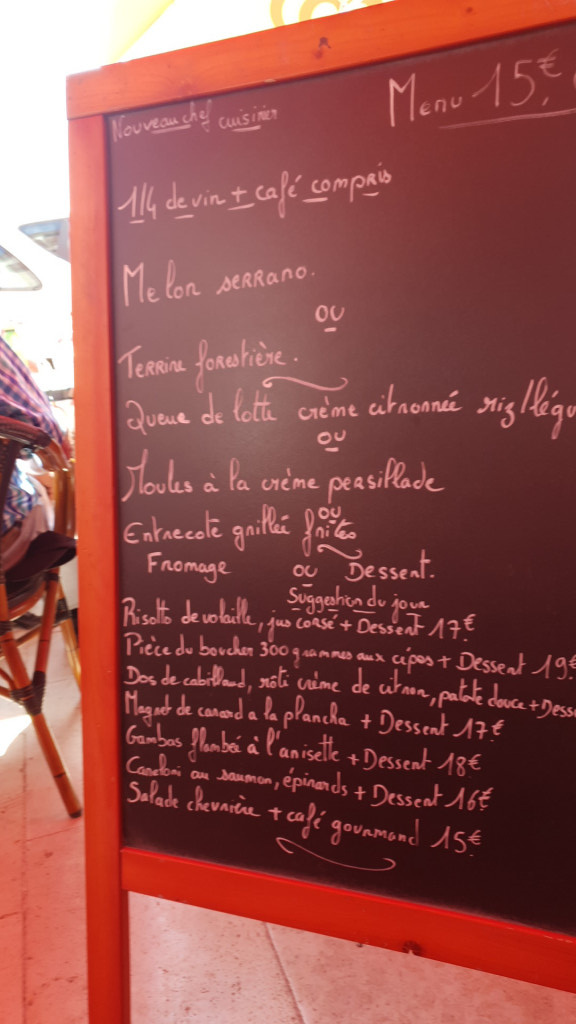 Nouveau chef cuisinier
Menu 15€
1/4 de vin + café compris
Melon serrano.
ou
Terrine forestière.
Queue de lotte crème citronnée riz/légu
ou
Moules à la crème persillade
ou
Entrecote grillée frites
Fromage ou Dessert.
Suggestion du jour
Risotto de volaille, jus corsé + Dessert 17€
Pièce du boucher 300 grammes aux cèpes + Dessert 19€
Dos de cabillaud, rôti crème de citron, patate douce + Dess
Magret de canard a la plancha + Dessert 17€
Gambas flambée à l'anisette + Dessert 18€
Caneloni au saumon, épinards + Dessert 16€
Salade chevrière + café gourmand 15€